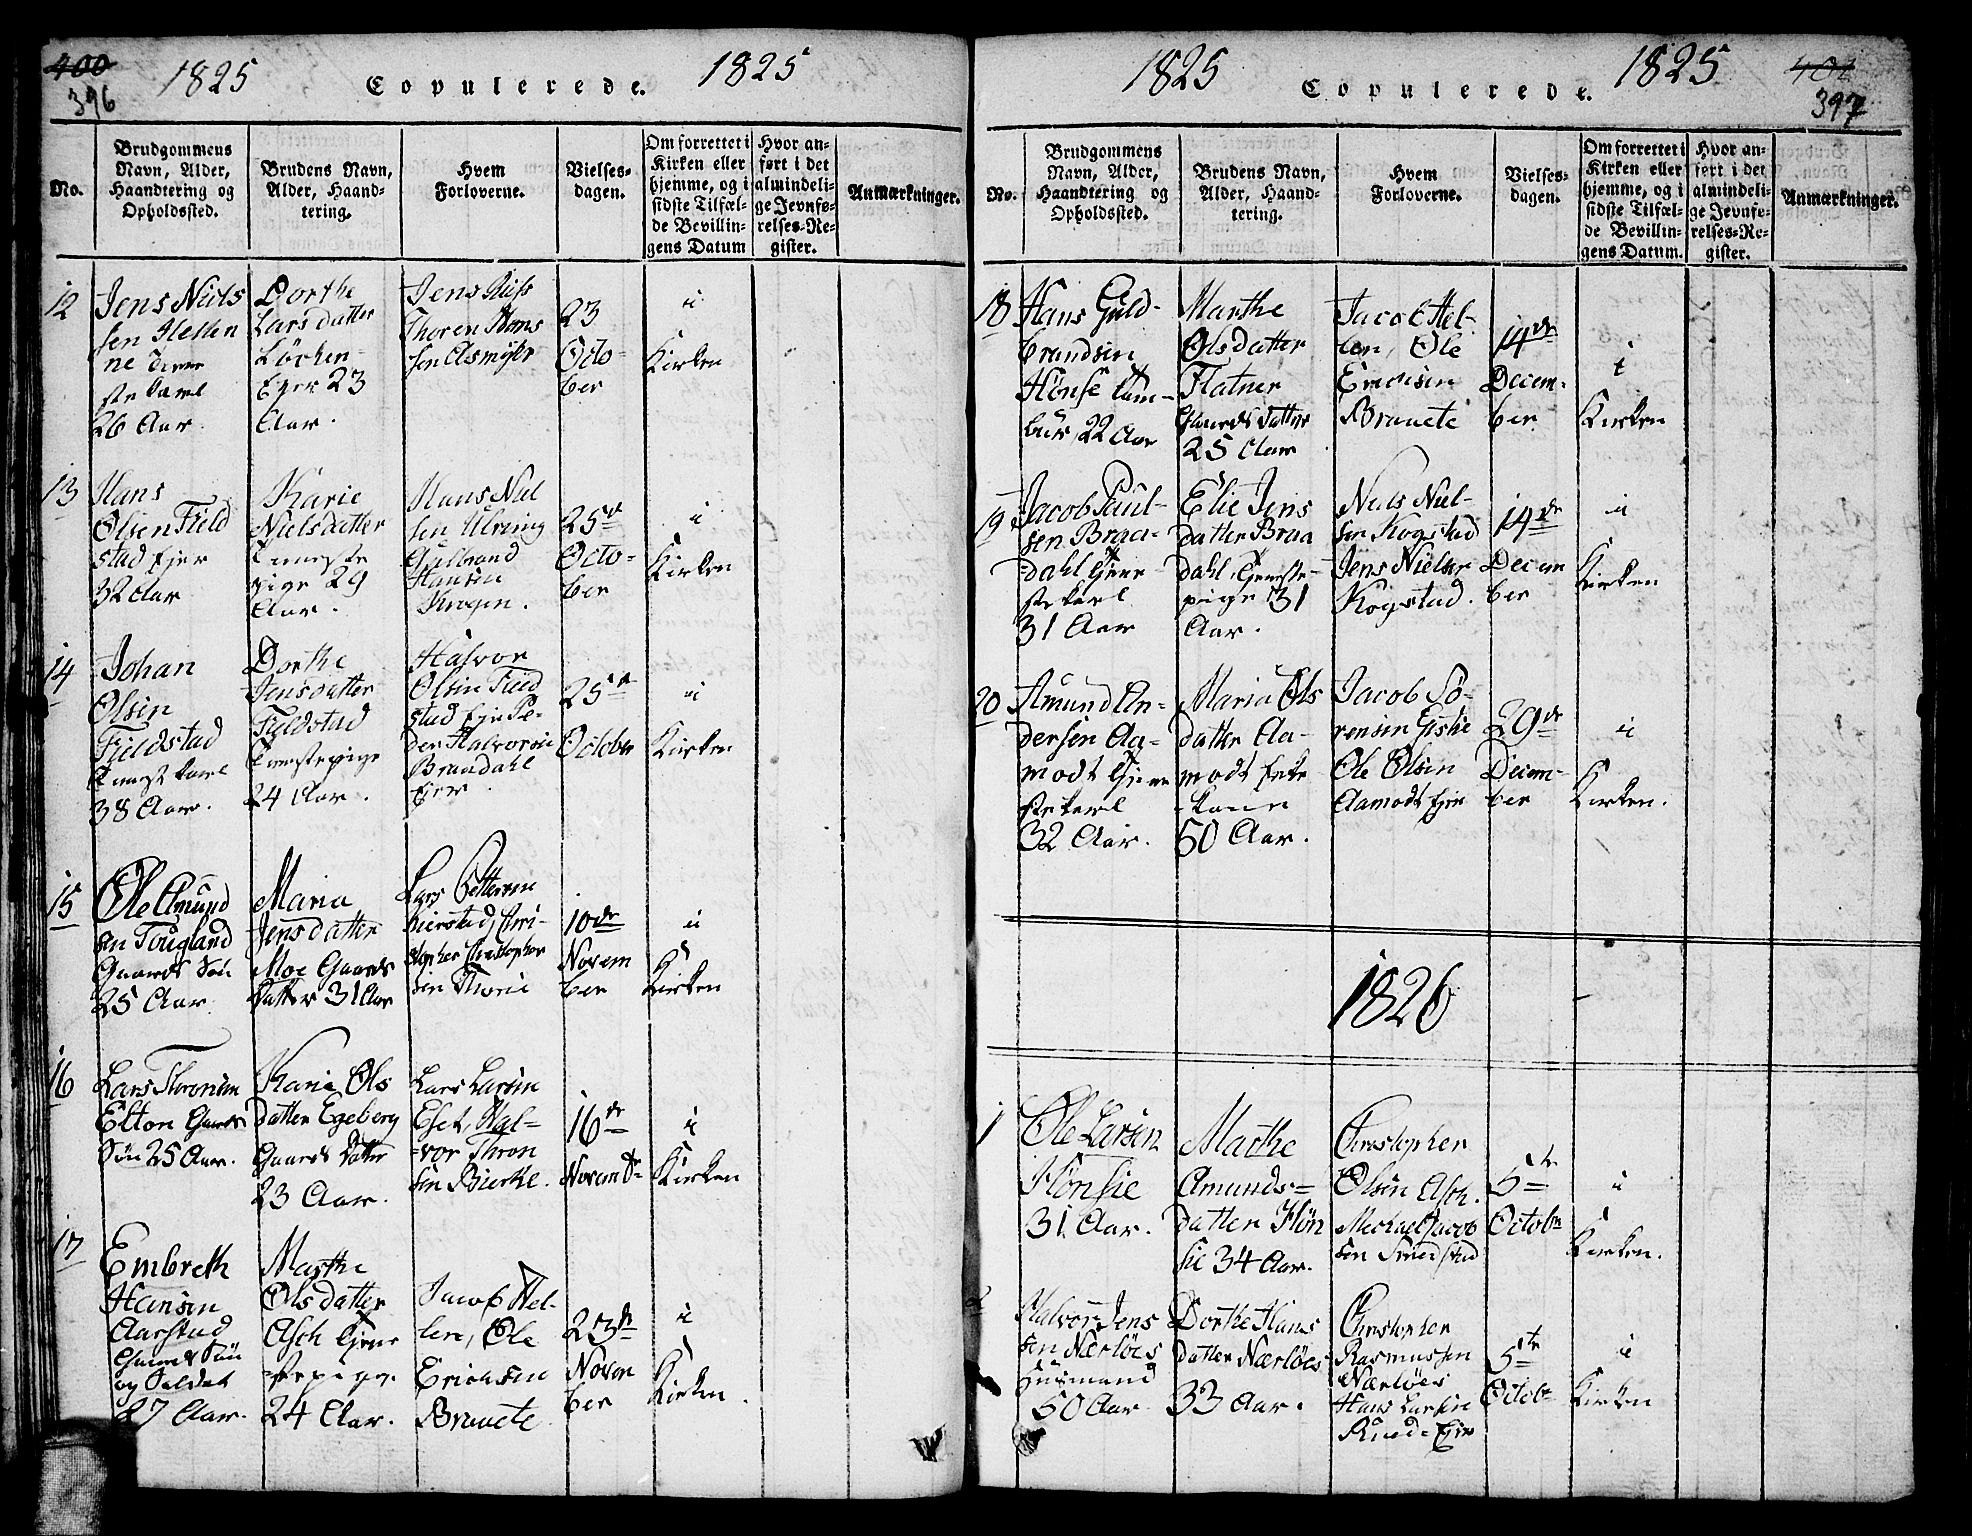 400
396
1825
Copulerede.
1825
No.
Brudgommens
Navn, Alder,
Haandtering og
Opholdssted.
Brudens Navn,
Alder, Haand-
tering.
Hvem
Forloverne.
Vielses-
dagen.
Om forrettet i
Kirken eller
hjemme, og i
sidste Tilfæl-
de Bevillin-
gens Datum
Hvor an-
ført i det
almindeli-
ge Jevnfø-
relses-Re-
gister.
Anmærkninger.
12
Jens Niels
sen Hellen
ne
26 Aar.
Dorthe
Larsdatter
Løcken
Eger 23
Aar.
Jens
Thoren Hans
sen
23
Octo-
ber
i
Kirken
13
Hans
Olsen Field
stad Ejer
32 Aar
Karie
Nielsdatter
Tieneste
pige 29
Aar.
Hans Niel
sen Ulvning
Gulbrand
Hansen
Krogen.
25de
Octo-
ber
i
Kirken
14
Johan
Olsen
Fieldstad
Tienestkarl
38 Aar.
Dorthe
Jensdatter
Fieldstad
Tienestepige
24 Aar.
Halvor
Olsen Field
stad Ejer Pe-
der Halvorsen
Brandahl
Ejer
25de
October
i
Kirken
15
Ole Amund
sen Tougland
Gaards Søn
25 Aar
Maria
Jensdatter
Moe Gaards
Datter 31 Aar
Lars Pettersen
Kierstad, Chri-
stopher Christopher
sen Thorie
10de
Novem
ber
i
Kirken
16
Lars Thronsen
Elton Gaards
Søn 25 Aar.
Karie Ols
datter Egeberg
Gaards Datter
23 Aar.
Lars Larsen
Eset, Hal-
vor Thron
sen Bierke.
16de
Novembr
i
Kirken
17
Embreth
Hansen
Aarstad
Gaards Søn
og Soldat
27 Aar.
Marthe
Olsdatter
Asch Tjene
stepige
24 Aar.
Jacob Hel-
len, Ole
Erichsen
Braaete
23de
Novem
ber
i
Kirken
1825
Copulerede.
1825
401
397
No.
Brudgommens
Navn, Alder,
Haandtering og
Opholdssted.
Brudens Navn,
Alder, Haand-
tering.
Hvem
Forloverne.
Vielses-
dagen.
Om forrettet i
Kirken eller
hjemme, og i
sidste Tilfæl-
de Bevillin-
gens Datum.
Hvor an-
ført i det
almindeli-
ge Jevnfø-
relses-Re-
gister.
Anmærkninger.
18
Hans Guld-
brandsen
Hønse Tam-
bur, 22 Aar
Marthe
Olsdatter
Flatner
Gaards Datter
25 Aar
Jacob Hel-
len, Ole
Erichsen
Braaete
14de
Decem-
ber
i
Kirken
19
Jacob Paul-
sen Braa-
dahl Tjene
stekarl
31 Aar
Elie Jens
datter Braa
dahl, Tjeneste-
pige 31
Aar.
Niels Niel-
sen Kogstad
Jens Nielsen
Kogstad.
14de
Decem
ber
i
Kirken
20
Amund An-
dersen Aa-
modt Tjene
stekarl
32 Aar.
Maria Ols
datter Aa-
modt Enke
-kone
50 Aar.
Jacob Sø-
rensen Gistie
Ole Olsen
Aamodt Ejer
29de
Decem-
ber
i
Kirken.
1826
1
Ole Larsen
Hønsie
31 Aar.
Marthe
Amunds-
datter Høn
sie 34 Aar.
Christopher
Olsen Asch.
Michael Jacob
sen Smedstad
5te
Octobr
i
Kirken.
2
Halvor Jens
sen Nærløes
Huusmand
50 Aar
Dorthe Hans
datter Nærløes
33 Aar.
Christopher
Rasmussen
Nærløes
Hans Larsen
Ruud-Ejer
5te
Octobr
i
Kirken